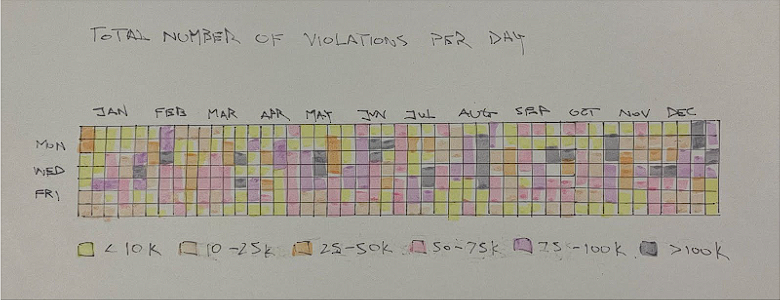 TOTAL NUMBER OF VIOLATIONS PER DAY
JAN FEB MAR APR MAY JUN JUL AUG SEP OCT NOV DEC
MON
WED
FRI
<10K 10-25K 25-50K 50-75K 75-100K >100K